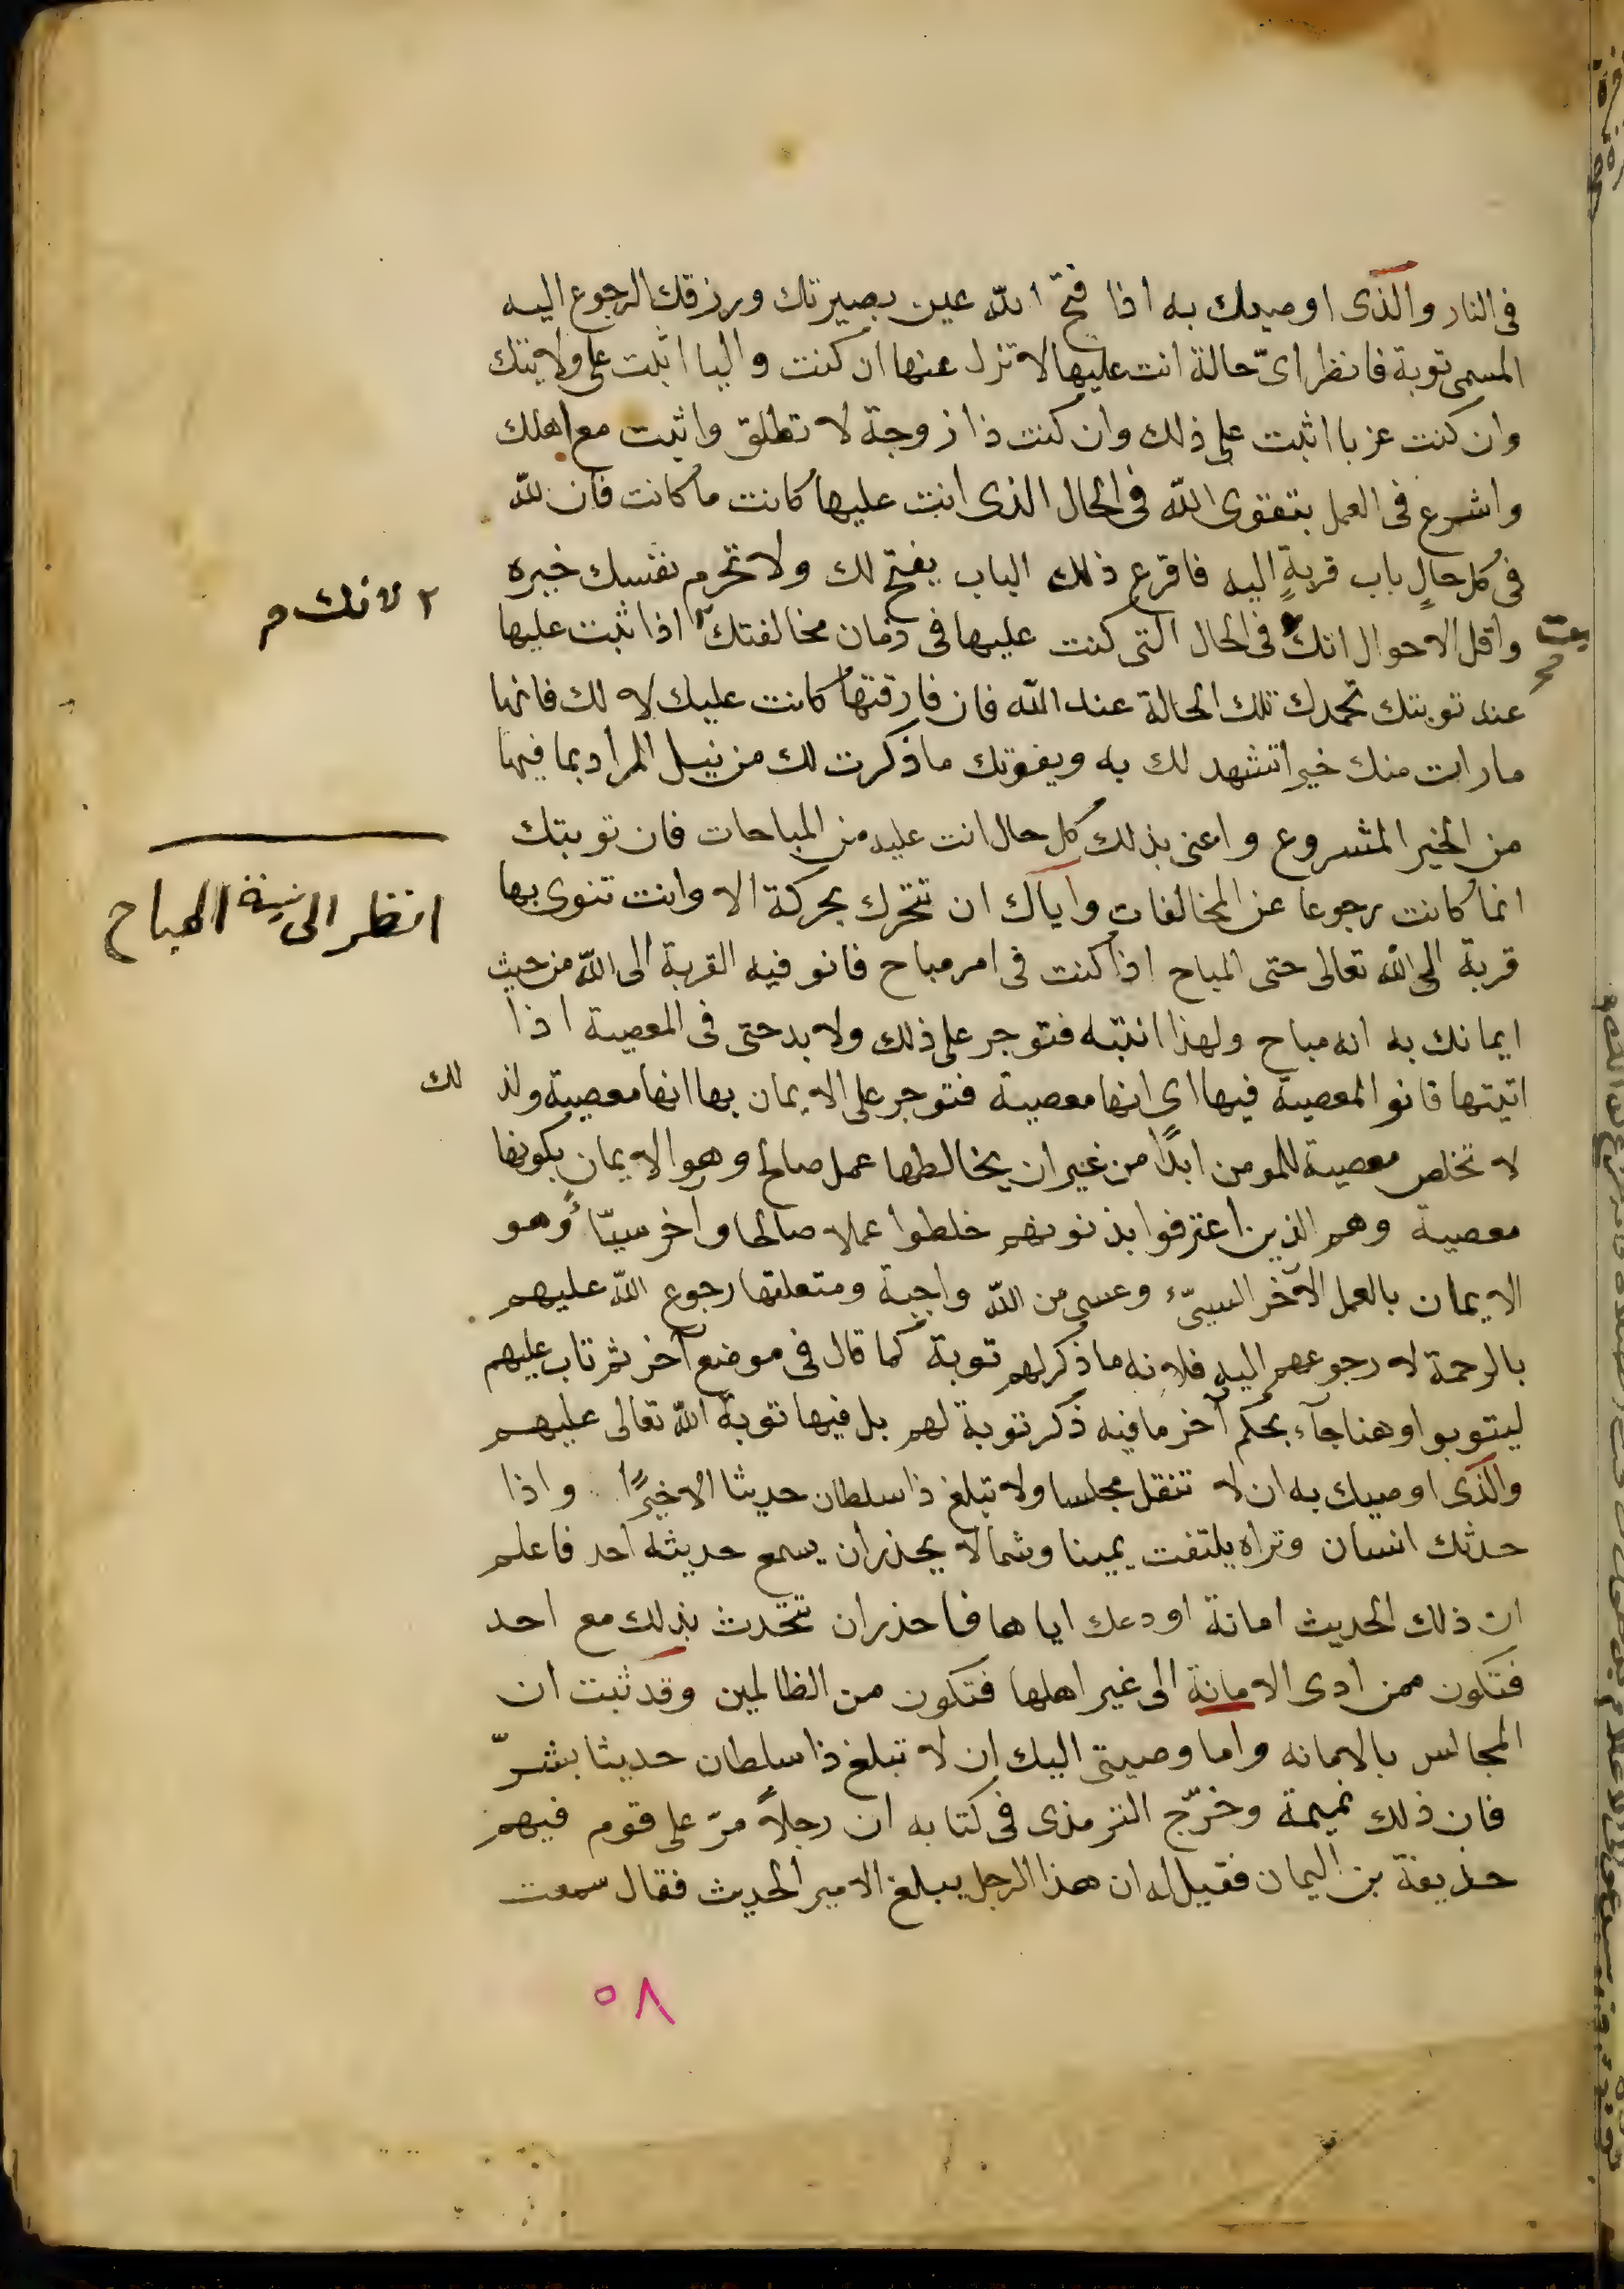 فى النار والذى اوصيك به اذا فتح الله عين بصيرتك ورزقك الرجوع اليه
المسمى توبة فانظر اىّ حالة انت عليها لا تزل عنها ان كنت واليا اثبت على ولايتك
وان كنت عزبا اثبت على ذلك وان كنت ذا زوجة لا تطلق واثبت مع اهلك
واشرع فى العمل بتقوى الله فى الحال الذى انت عليها كانت ما كانت فان لله
فى كل حالٍ باب قربةٍ اليه فاقرع ذلك الباب يفتح لك ولا تحرم نفسك خيره
٢ لانك م
واقل الاحوال انك فى الحال التى كنت عليها فى زمان مخالفتك اذا ثبت عليها
عند توبتك تحمدك تلك الحالة عند الله فان فارقتها كانت عليك لا لك فانها
ما رات منك خيرا تشهد لك به ويفوتك ما ذكرت لك من نيل المراد بما فيها
من الخير المشروع واعنى بذلك كل حال انت عليه من المباحات فان توبتك
انما كانت رجوعا عن المخالفات واياك ان تتحرك بحركة الا وانت تنوى بها
انظر الى نية المباح
قربة الى الله تعالى حتى المباح اذا كنت فى امر مباح فانو فيه القربة الى الله من حيث
ايمانك به انه مباح ولهذا اتيته فتوجر على ذلك ولا بد حتى فى المعصية اذا
اتيتها فانو المعصية فيها اى انها معصية فتوجر على الايمان بها انها معصية ولذلك
لا تخلص معصية للمومن ابدًا من غير ان يخالطها عمل صالح وهو الايمان بكونها
معصية وهم الذين اعترفوا بذنوبهم خلطوا عملا صالحا وآخر سيّئا وهو
الايمان بالعمل الآخر السيّئ وعسى من الله واجبة ومتعلقها رجوع الله عليهم
بالرحمة لا رجوعهم اليه فلانه ما ذكر لهم توبة كما قال فى موضع آخر ثم تاب عليهم
ليتوبوا وهنا جآء بحكم آخر ما فيه ذكر توبة لهم بل فيها توبة الله تعالى عليهم
والذى اوصيك به ان لا تنقل مجلسا ولا تبلغ ذا سلطان حديثا الا خيرًا واذا
حدثك انسان وتراه يلتفت يمينا وشمالا يحذر ان يسمع حديثه احد فاعلم
ان ذلك الحديث امانة اودعك اياها فاحذر ان تتحدث بذلك مع احد
فتكون ممن ادى الامانة الى غير اهلها فتكون من الظالمين وقد ثبت ان
المجالس بالامانه واما وصيتى اليك ان لا تبلغ ذا سلطان حديثا بشرّ
فان ذلك نميمة وخرّج الترمذى فى كتابه ان رجلاً مرّ على قوم فيهم
حذيفة بن اليمان فقيل له ان هذا الرجل يبلغ الامير الحديث فقال سمعت
٥٨